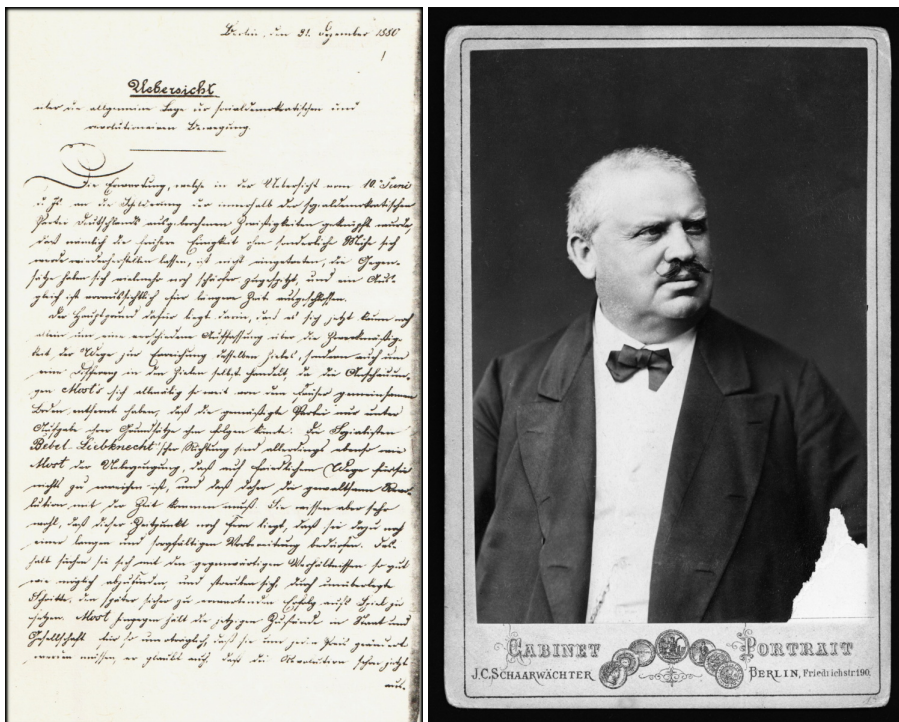 Berlin, den 31. Dezember 1880
Uebersicht
über die allgemeine Lage der sozialdemokratischen und
revolutionären Bewegung.
Die Erwartung, welche in der Uebersicht vom 10. Juni
d. Js. an die Schilderung der innerhalb der sozialdemokratischen
Partei Deutschlands ausgebrochenen Zwistigkeiten geknüpft wurde,
daß nämlich die frühere Einigkeit ohne sonderliche Mühe sich
werde wiederherstellen lassen, ist nicht eingetreten, die Gegen-
sätze haben sich vielmehr noch schärfer zugespitzt, und ein Aus-
gleich ist voraussichtlich für längere Zeit ausgeschlossen.
Der Hauptgrund dafür liegt darin, daß es sich jetzt kaum noch
allein um eine verschiedene Auffassung über die Zweckmäßig-
keit der Wege zur Erreichung desselben Zieles, sondern auch um
eine Differenz in den Zielen selbst handelt, da die Anschauun-
gen Most's sich allmälig so weit von dem früher gemeinsamen
Boden entfernt haben, daß die gemäßigte Partei nur unter
Aufgabe ihrer Grundsätze ihm folgen könnte. Die Sozialisten
Bebel Liebknecht'scher Richtung sind allerdings ebenso wie
Most der Ueberzeugung, daß auf friedlichem Wege für sie
nichts zu erreichen ist, und daß daher die gewaltsame Revo-
lution mit der Zeit kommen muß. Sie wissen aber sehr
wohl, daß dieser Zeitpunkt noch fern liegt, daß sie dazu noch
einer langen und sorgfältigen Vorbereitung bedürfen. Des-
halb suchen sie sich mit den gegenwärtigen Verhältnissen so gut
wie möglich abzufinden, und sträuben sich, durch unüberlegte
Schritte, den später sicher zu erwartenden Erfolg aufs Spiel zu
setzen. Most hingegen hält die jetzigen Zustände in Staat und
Gesellschaft für so unerträglich, daß sie um jeden Preis geändert
werden müssen, er glaubt auch, daß die Revolution schon jetzt
CABINET PORTRAIT
J.C. SCHAARWÄCHTER BERLIN, Friedrichstr 190.